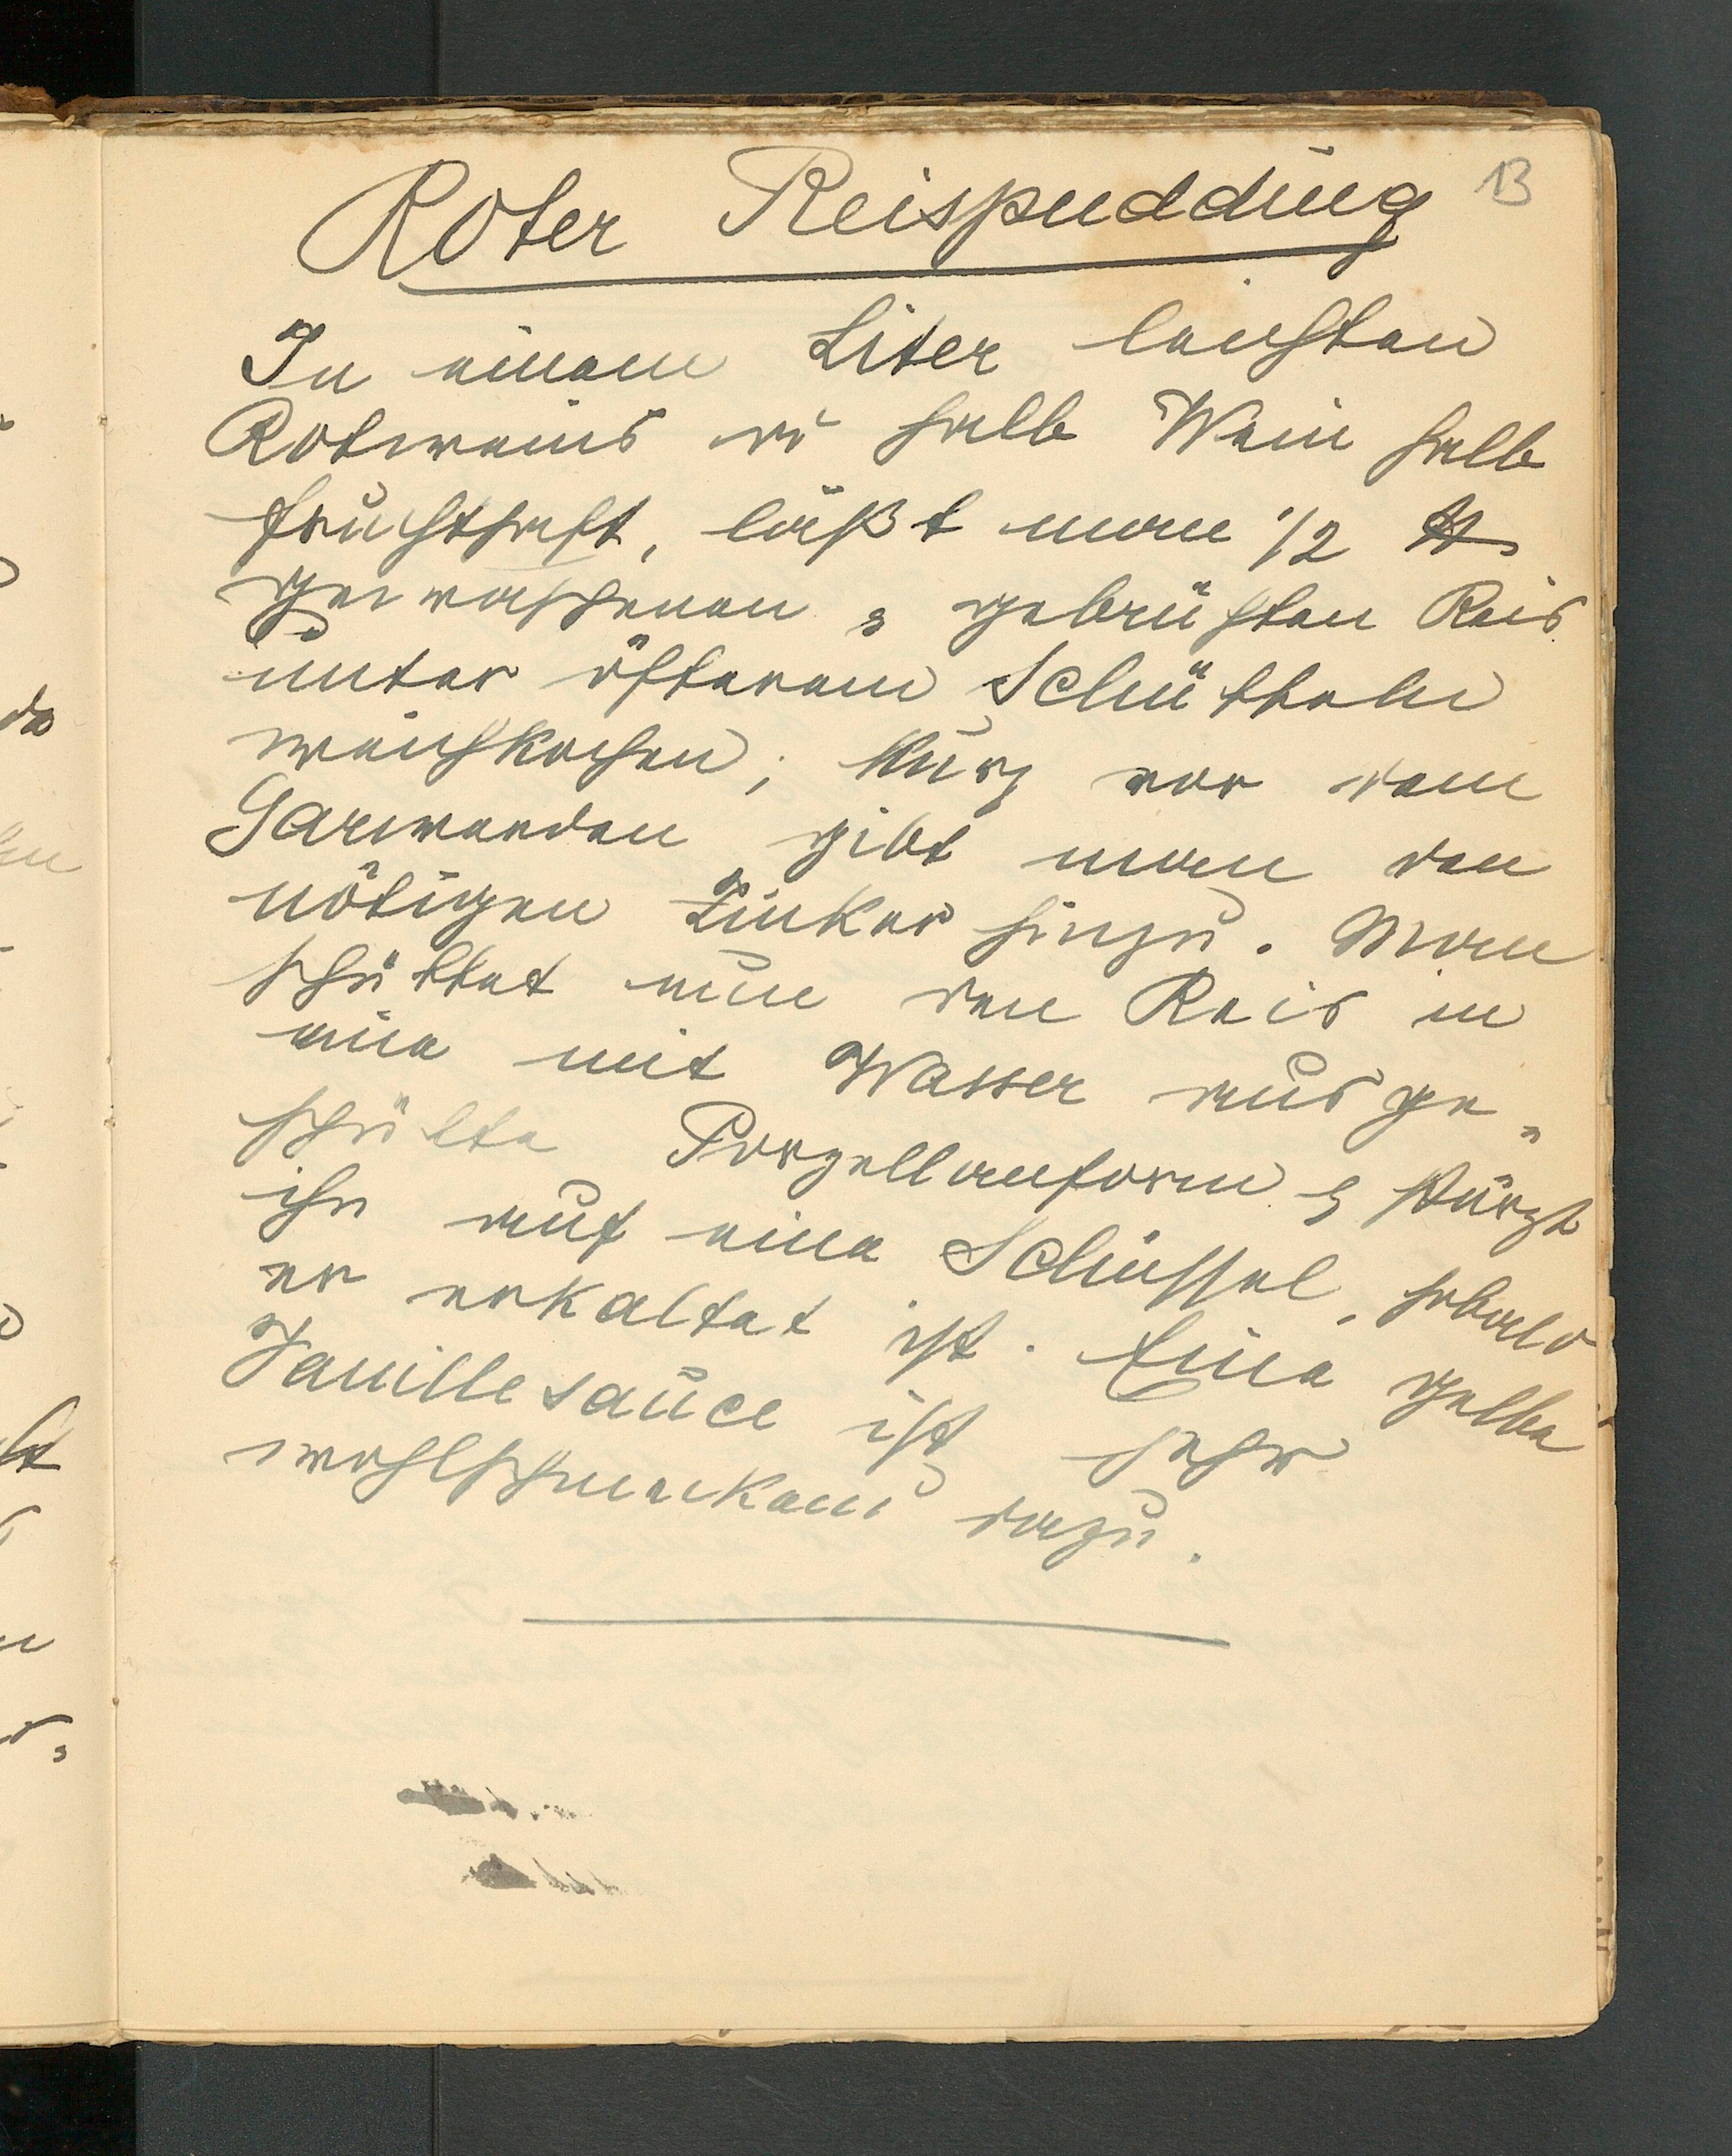 13
Roter Reispudding
In einem Liter leichten
Rotweins od halb Wein halb
Fruchtsaft, läßt man 1/2 ℔
gewaschenen & gebrühten Reis
unter öfterem Schütteln
weichkochen; kurz vor dem
Garwerden gibt man den
nötigen Zucker hinzu. Man
schüttet nun den Reis in
eine mit Wasser ausge„
spülte Porzellanform & stürzt
ihn auf eine Schüssel, sobald
er erkaltet ist. Eine gelbe
Vanillesauce ist sehr
wohlschmeckend dazu.